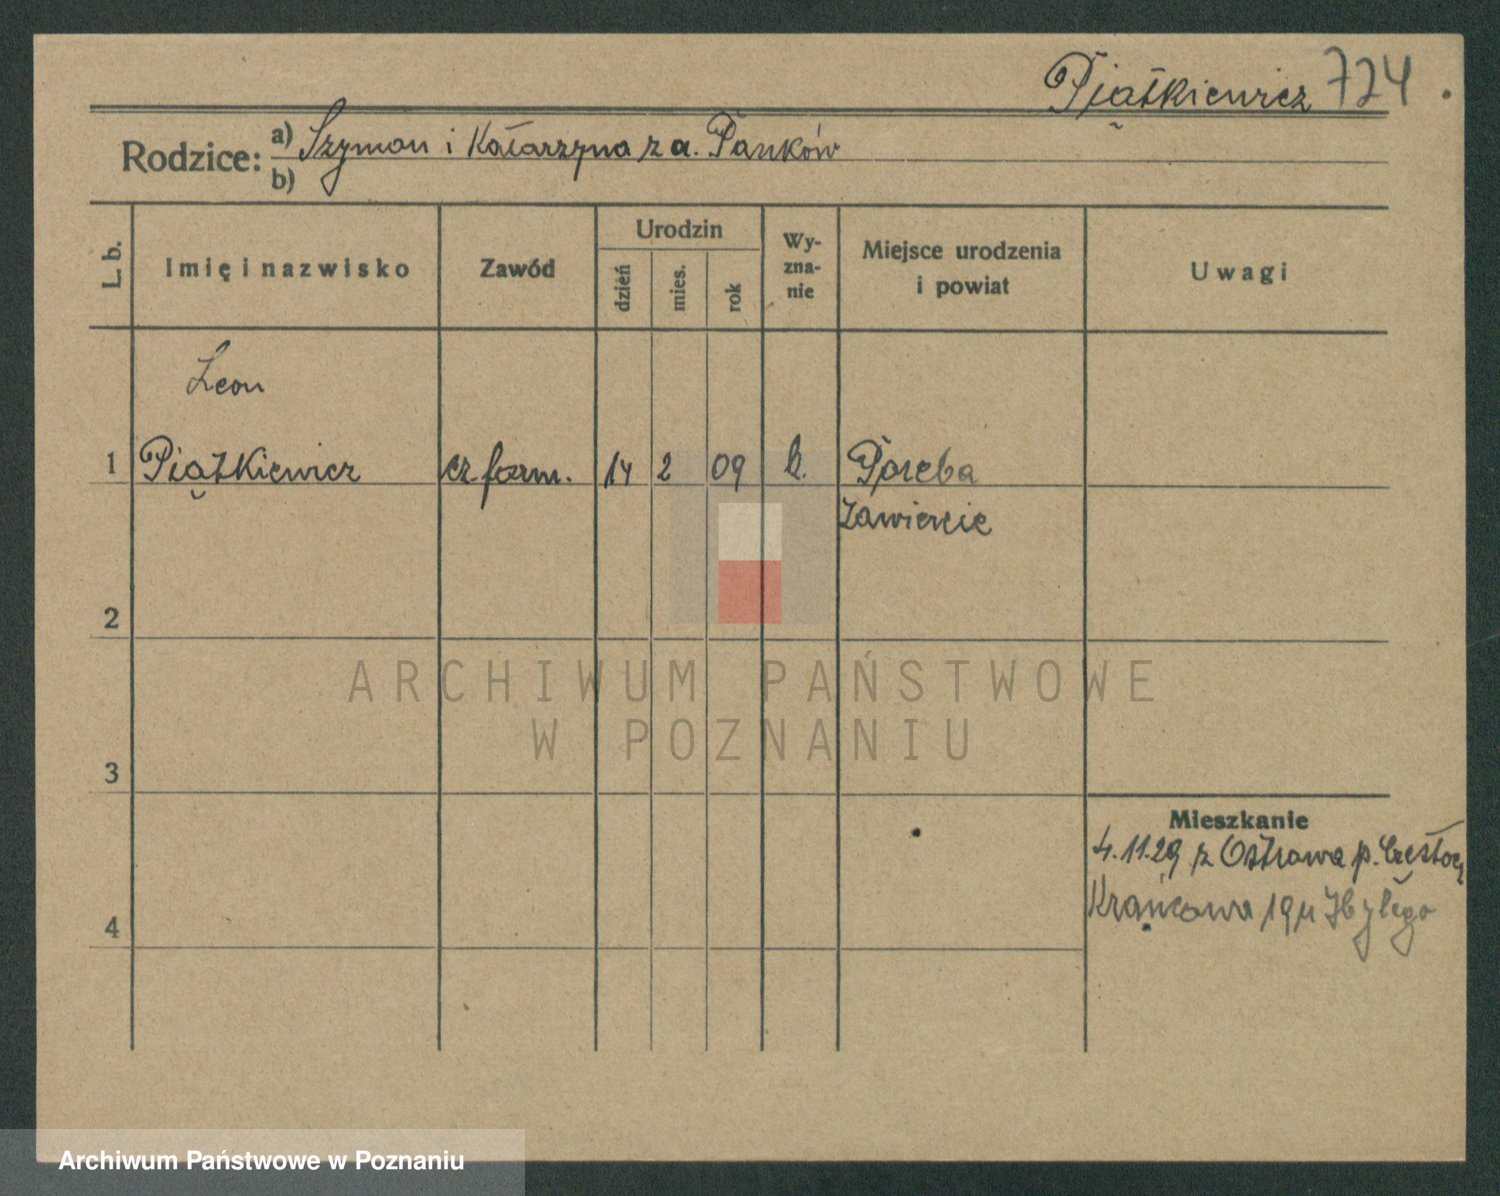 Piątkiewicz 724.
Rodzice: a) Szymon i Katarzyna z d. Panków
b)
L. b.
Imię i nazwisko
Zawód
Urodzin
dzień
mies.
rok
Wy-
zna-
nie
Miejsce urodzenia
i powiat
Uwagi
Leon
1 Piątkiewicz cz. form. 14 2 09 k. Poręba
Zawiercie
2
ARCHIWUM PAŃSTWOWE
W POZNANIU
3
Mieszkanie
4.11.29 z Ostrowa p. Często
Krańcowa 19 u Zbyłego
4
Archiwum Państwowe w Poznaniu